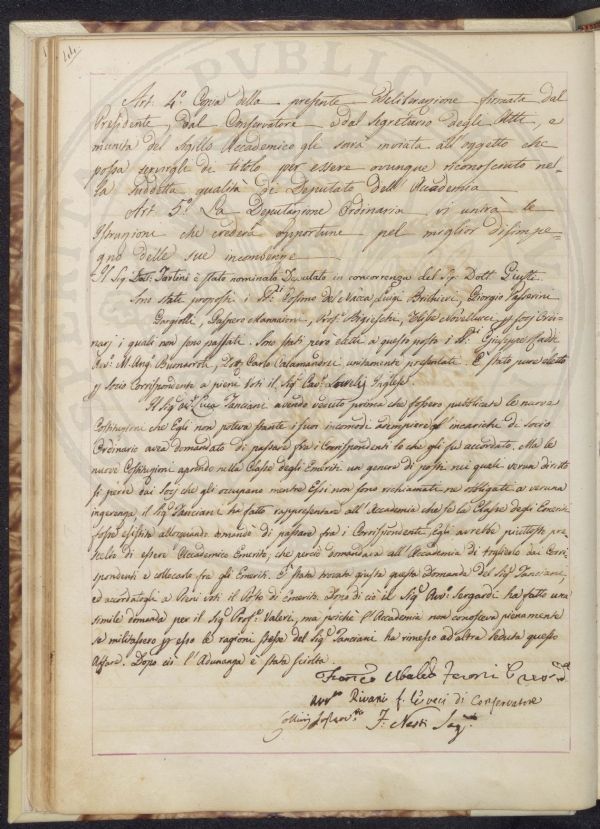 44.
Art. 4.° Copia della presente Deliberazione firmata dal
Presidente, dal Conservatore e dal Segretario degli Atti, e
munita del Sigillo Accademico gli sarà inviata all'oggetto che
possa servirgli di titolo per essere ovunque riconosciuto nel-
la suddetta qualità di Deputato dell'Accademia
Art. 5.° La Deputazione Ordinaria vi unirà le
Istruzione che crederà opportune pel miglior disimpe-
gno delle sue incombenze
Il Sig. Dott. Tartini è stato nominato Deputato in concorrenza del Sig. Dott. Giusti.
Sono stati proposti i SS.ri Cosimo del Nacca, Luigi Bruhieri, Giorgio Passerini
Gaspero Mannaioni, Prof. Elise Novellucci p. Socj Ordi-
narj i quali non sono passati. Sono stati però eletti a questo posto i SS.ri Giuseppe
Avv. M. Ang. Buonsroli, Dott. Carlo Calamandrei unitamente presentati. È stato pure eletto
p Socio Corrispondente a pieni Voti il Sig. Cav. Inglese.
Il Sig. Luca Panciani avendo veduto prima che fossero pubblicate le nuove
Costituzioni che Egli non poteva stante i suoi incomodi adempiere gl'incarichi di Socio
Ordinario avea domandato di passare fra i Corrispondenti lo che gli fu accordato. Ma le
nuove Costituzioni aprendo nella Classe degli Emeriti un genere di posti nei quali verun diritto
si perde dai Socj che gli occupano mentre Essi non sono richiamati nè obbligati a veruna
ingerenza il Sig. Panciani ha fatto rappresentare all'Accademia che se la Classe degli Emeriti
fosse esistita allorquando domandò di passare fra i Corrispondenti, Egli avrebbe piuttosto pre-
scelto di essere Accademico Emerito, che perciò domandava all'Accademia di toglierlo dai Corri-
spondenti e collocarlo fra gli Emeriti. È stata trovata giusta questa Domanda del Sig. Panciani,
ed accordatogli a Pieni Voti il Posto di Emerito. Dopo di ciò il Sig. Avv. Sergardi ha fatto una
simile domanda per il Sig. Prof. Valeri, ma poichè l'Accademia non conosceva pienamente
se militassero p esso le ragioni stesse del Sig. Panciani ha rimesso ad altra Seduta questo
Affare. Dopo ciò l'Adunanza è stata sciolta.
Franco Ubaldo Feroni
Avv. Rivani f. le veci di Conservatore
F. Nesti Seg.